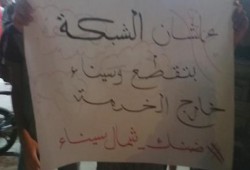 علشان الشبكة
بتقطع وسيناء
خارج الخدمة
#ضنك_شمال_سيناء